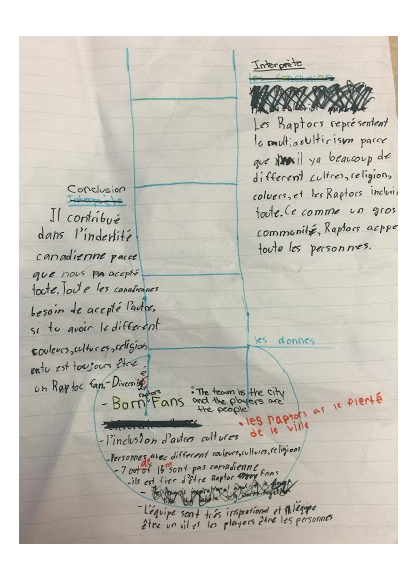 Interprète
Les Raptors représentent
le multiaculturism parce
que il ya beaucoup de
different cultres, religion,
coluers, et les Raptors inclui
toute. Ce comme un gros
communité, Raptors acppe
toute les personnes.
Conclusion
Il contribué
dans l'indentité
canadienne parce
que nous pa acepté
toute. Toute les canadiennes
besoin de acepté l'autre,
si tu avoir le different
couleurs, cultures, religions
entu est toujours être
un Raptor fan. - Diversité
les donnes
- Born Raptors Fans
• The team is the city
and the players are
the people
• les raptors as le fierté
de le ville
- l'inclusion d'autres cultures
- Personnes avec different couleurs, cultures, religions
- 7 out de 15 ne sont pas canadienne
- ils est fier d'être Raptor Fans
- L'équipe sont très inspirational et l'équipe
être un vil et les players être les personnes